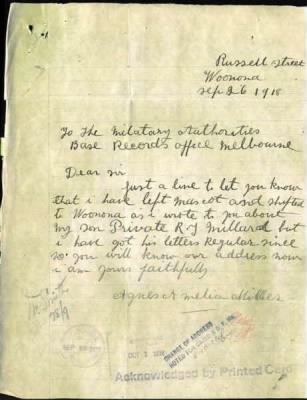 Russell Street
Woonona
Sep 26 1918
To The Militatary Authorities
Base Records office Melbourne
Dear sir
just a line to let you know
that i have left Mascot and shifted
to Woonona as i wrote to you about
my son Private R J Millard but
i have got his letters Regular since
so you will know our address now
i am yours faithfully
Agnes Amelia
CHANGE OF ADDRESS
NOTED FOR
Acknowledged by Printed Card